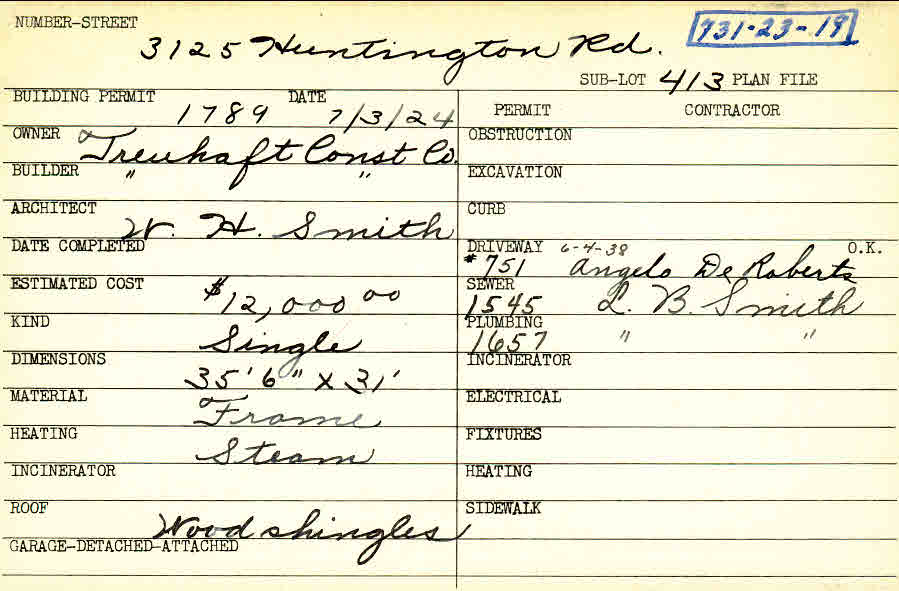 NUMBER-STREET
3125 Huntington Rd.
731-23-19
SUB-LOT 413 PLAN FILE
BUILDING PERMIT 1789 DATE 7/3/24
OWNER Treuhaft Const Co.
BUILDER " "
ARCHITECT W. H. Smith
DATE COMPLETED
ESTIMATED COST $12,000 00
KIND Single
DIMENSIONS 35' 6" x 31'
MATERIAL Frame
HEATING Steam
INCINERATOR
ROOF Wood shingles
GARAGE-DETACHED-ATTACHED
PERMIT CONTRACTOR
OBSTRUCTION
EXCAVATION
CURB
DRIVEWAY 6-4-38 O.K.
#751 Angelo De Roberts
SEWER
1545 L. B. Smith
PLUMBING
1657 " "
INCINERATOR
ELECTRICAL
FIXTURES
HEATING
SIDEWALK